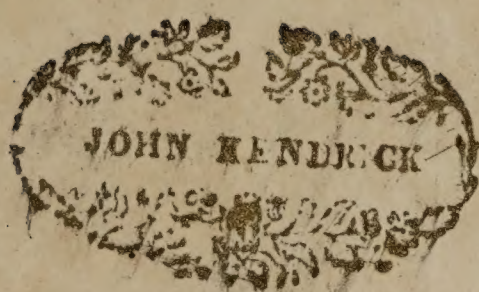 JOHN KENDRICK